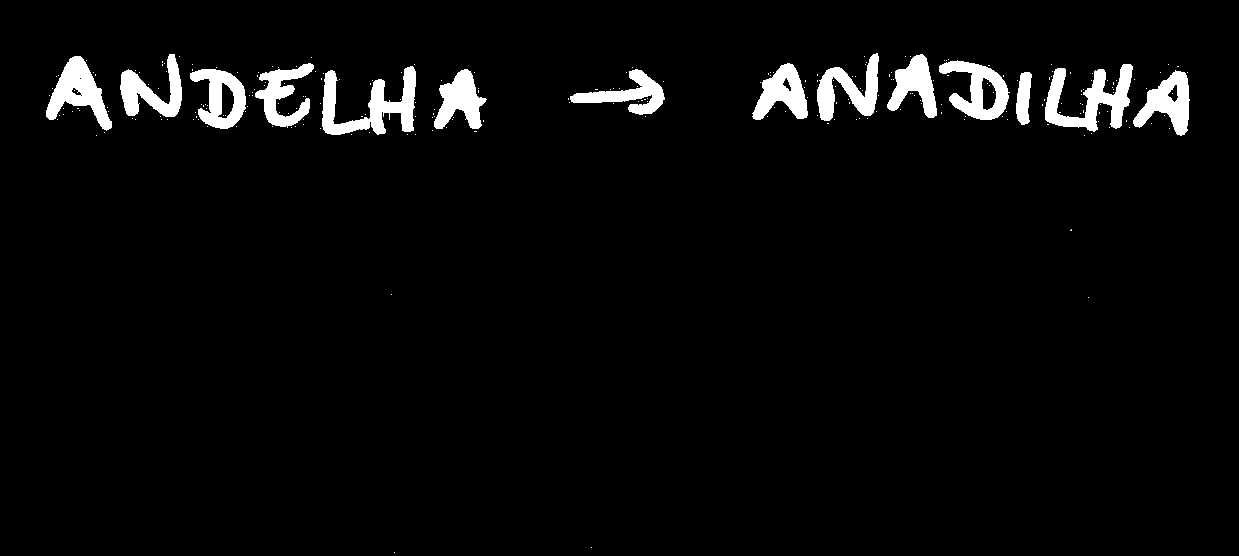 ANDELHA → ANADILHA